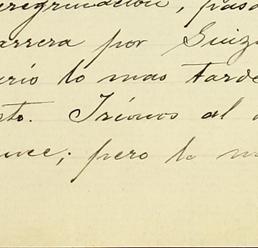 peregrinación, pasa
arrera por Suiza
erío lo mas tarde
sto. Irémos al
nce; pero lo m